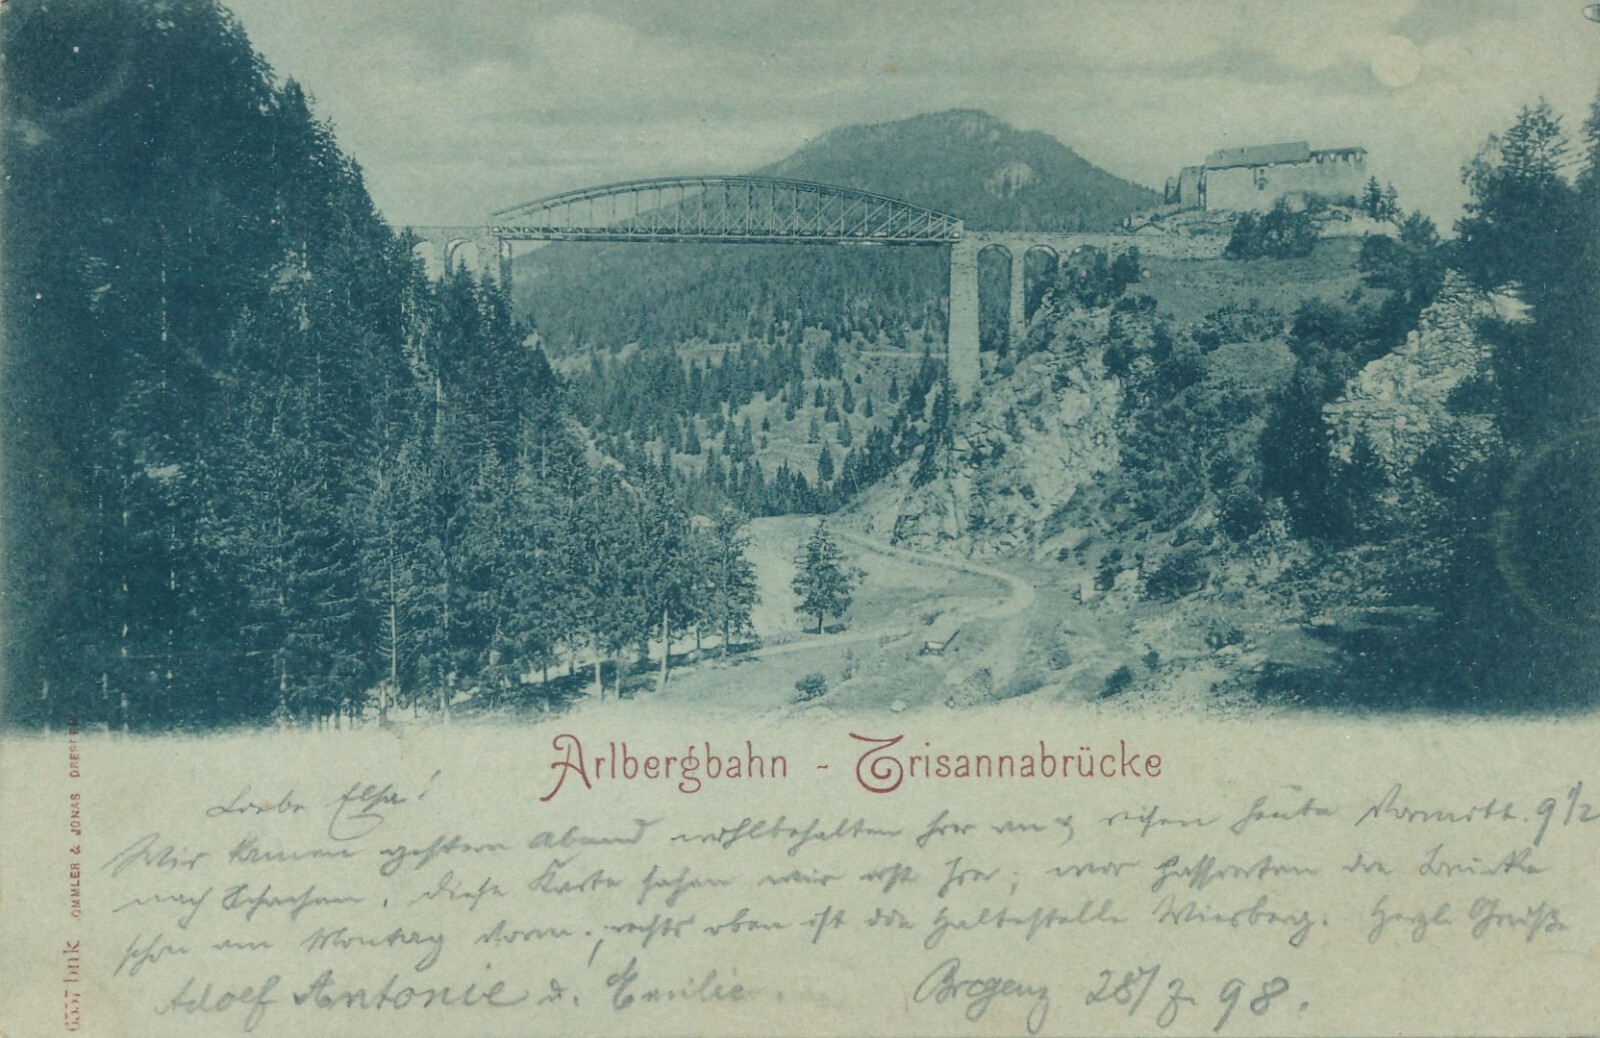 Arlbergbahn - Trisannabrücke
Liebe Elsa!
Wir kamen gestern Abend wohlbehalten hier an & reisen heute Vormitt. 9 1/2
nach Schachen. Diese Karte sahen wir erst hier; wir passierten die Brücke
schon am Montag Vorm., rechts oben ist die Haltestelle Wiesberg. Herzl. Grüße
Adolf Antonie u. Emilie.
Bregenz 28/7. 98.
6557 bnk OMMLER & JONAS DRESDEN